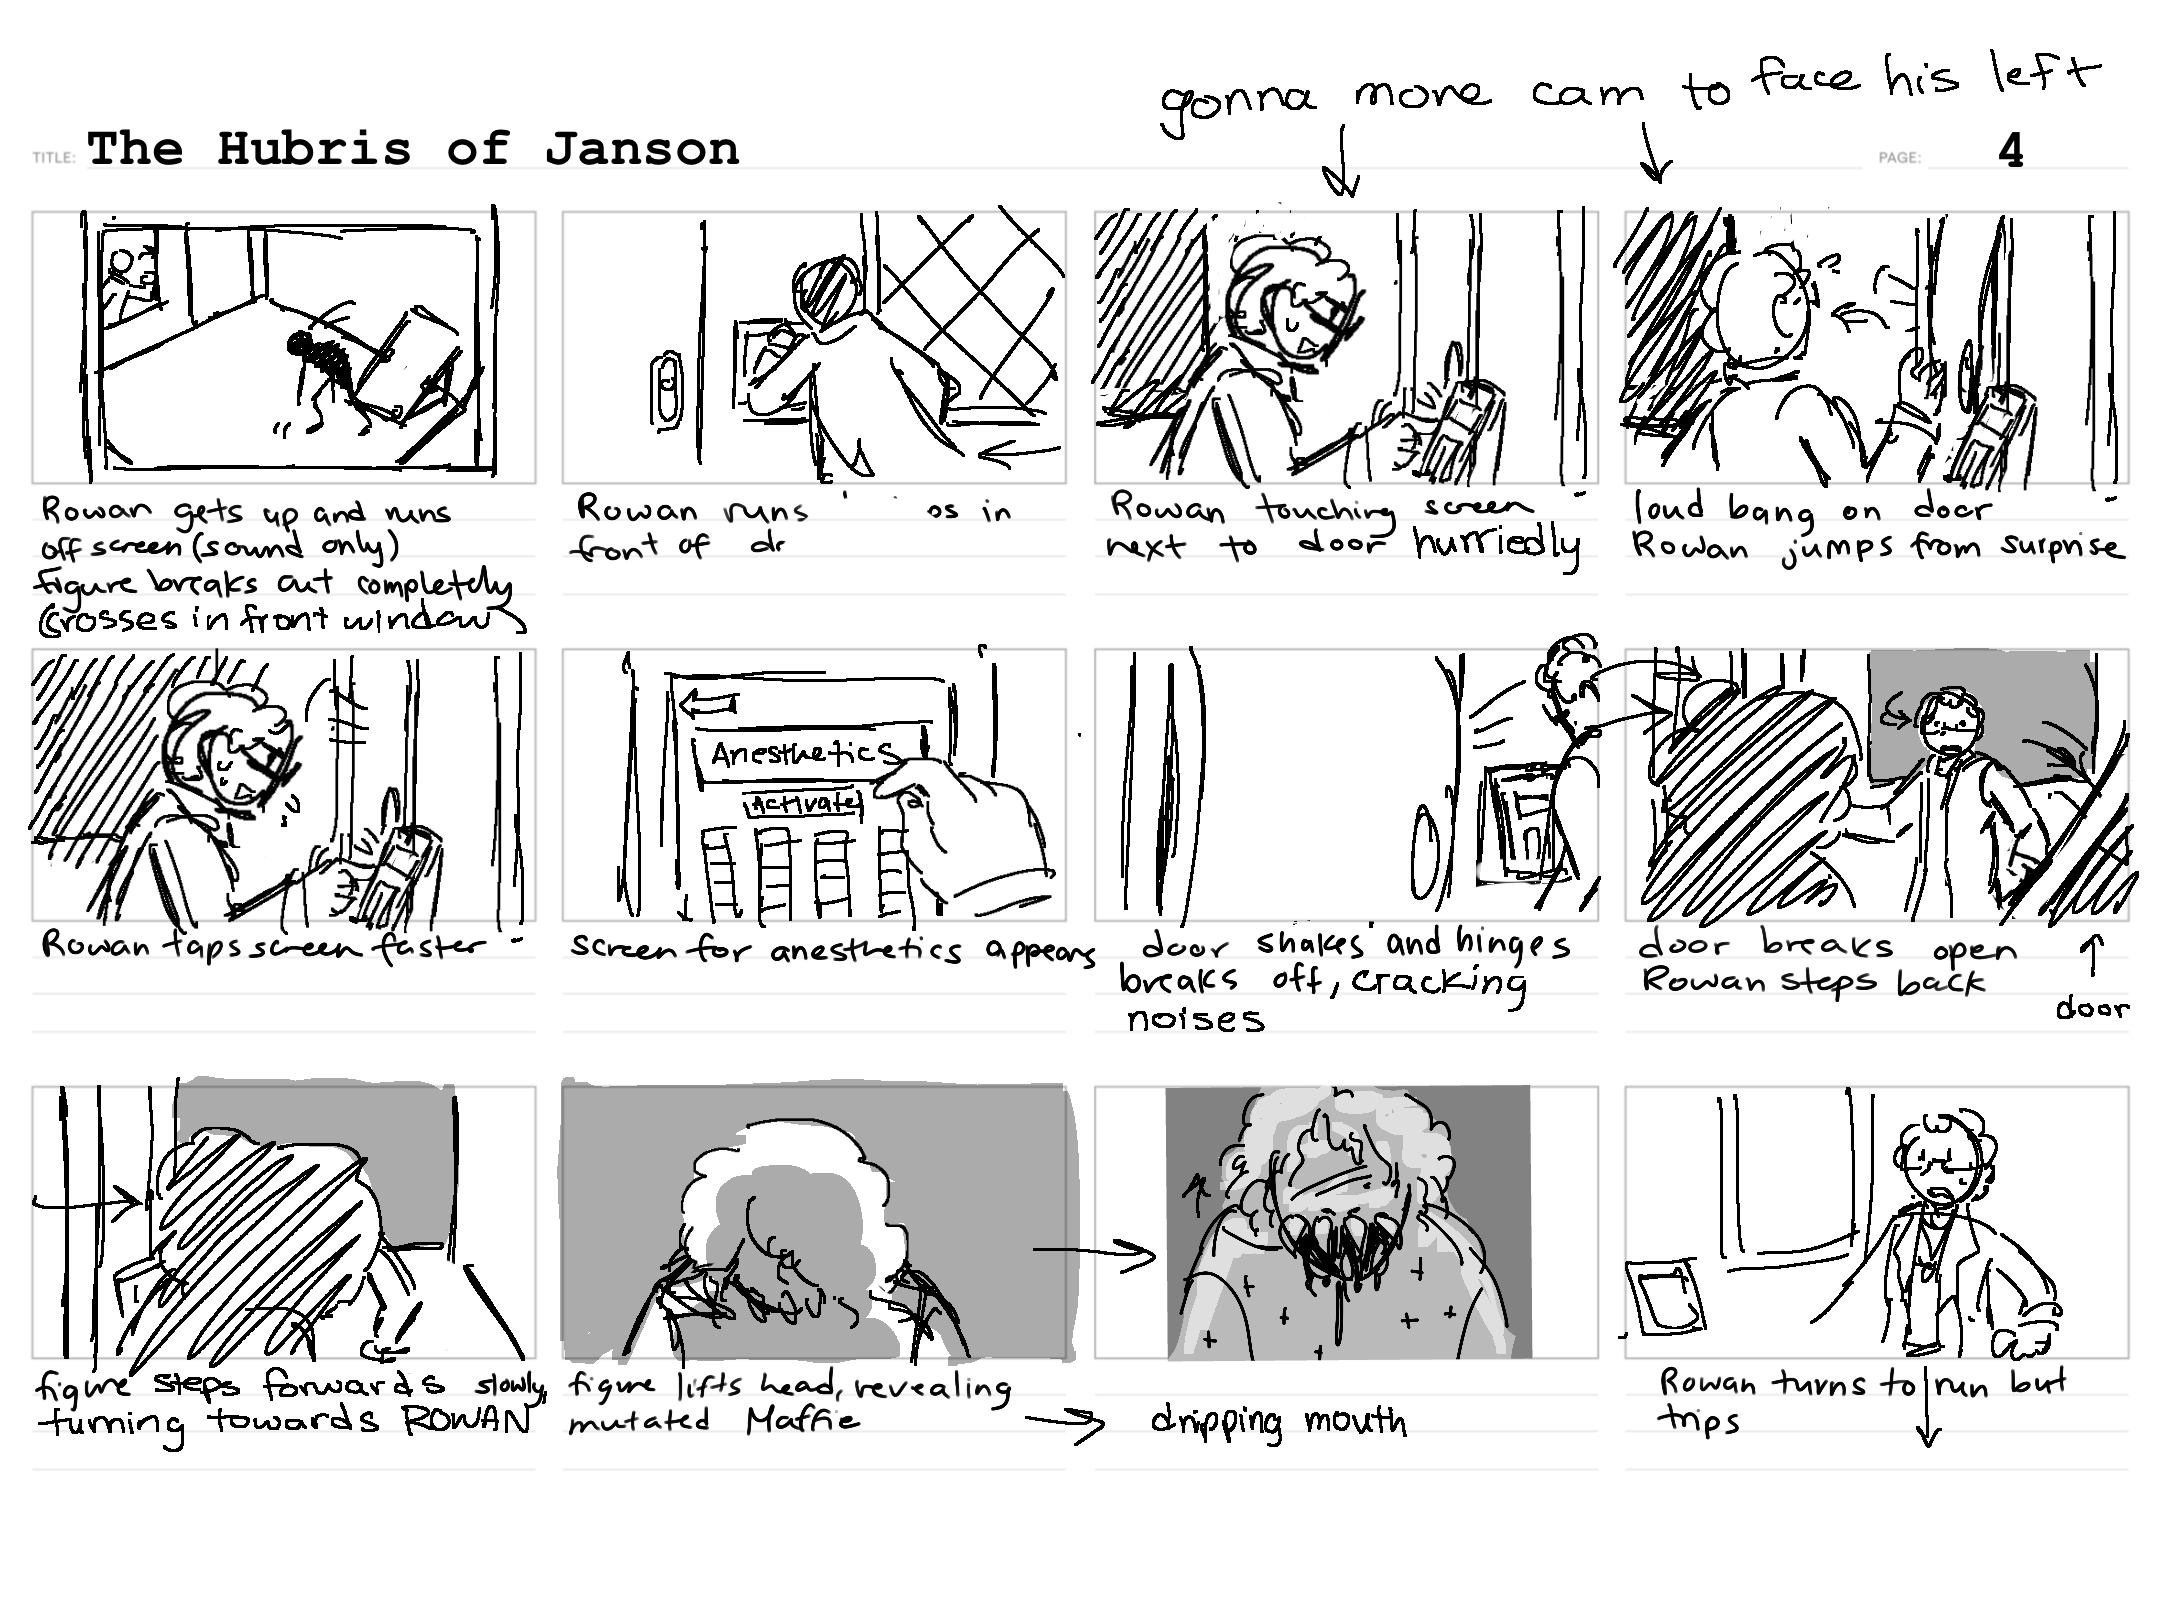 gonna move cam to face his left
TITLE: The Hubris of Janson
PAGE: 4
Rowan gets up and runs
off screen (sound only)
figure breaks out completely
(crosses in front window)
Rowan runs os in
front of
Rowan touching screen
next to door hurriedly
loud bang on door
Rowan jumps from surprise
Anesthetics
Activate
Rowan taps screen faster
screen for anesthetics appears
door shakes and hinges
breaks off, cracking
noises
door breaks open
Rowan steps back
door
figure steps forwards slowly,
turning towards ROWAN
figure lifts head, revealing
mutated Maffie
dripping mouth
Rowan turns to run but
trips